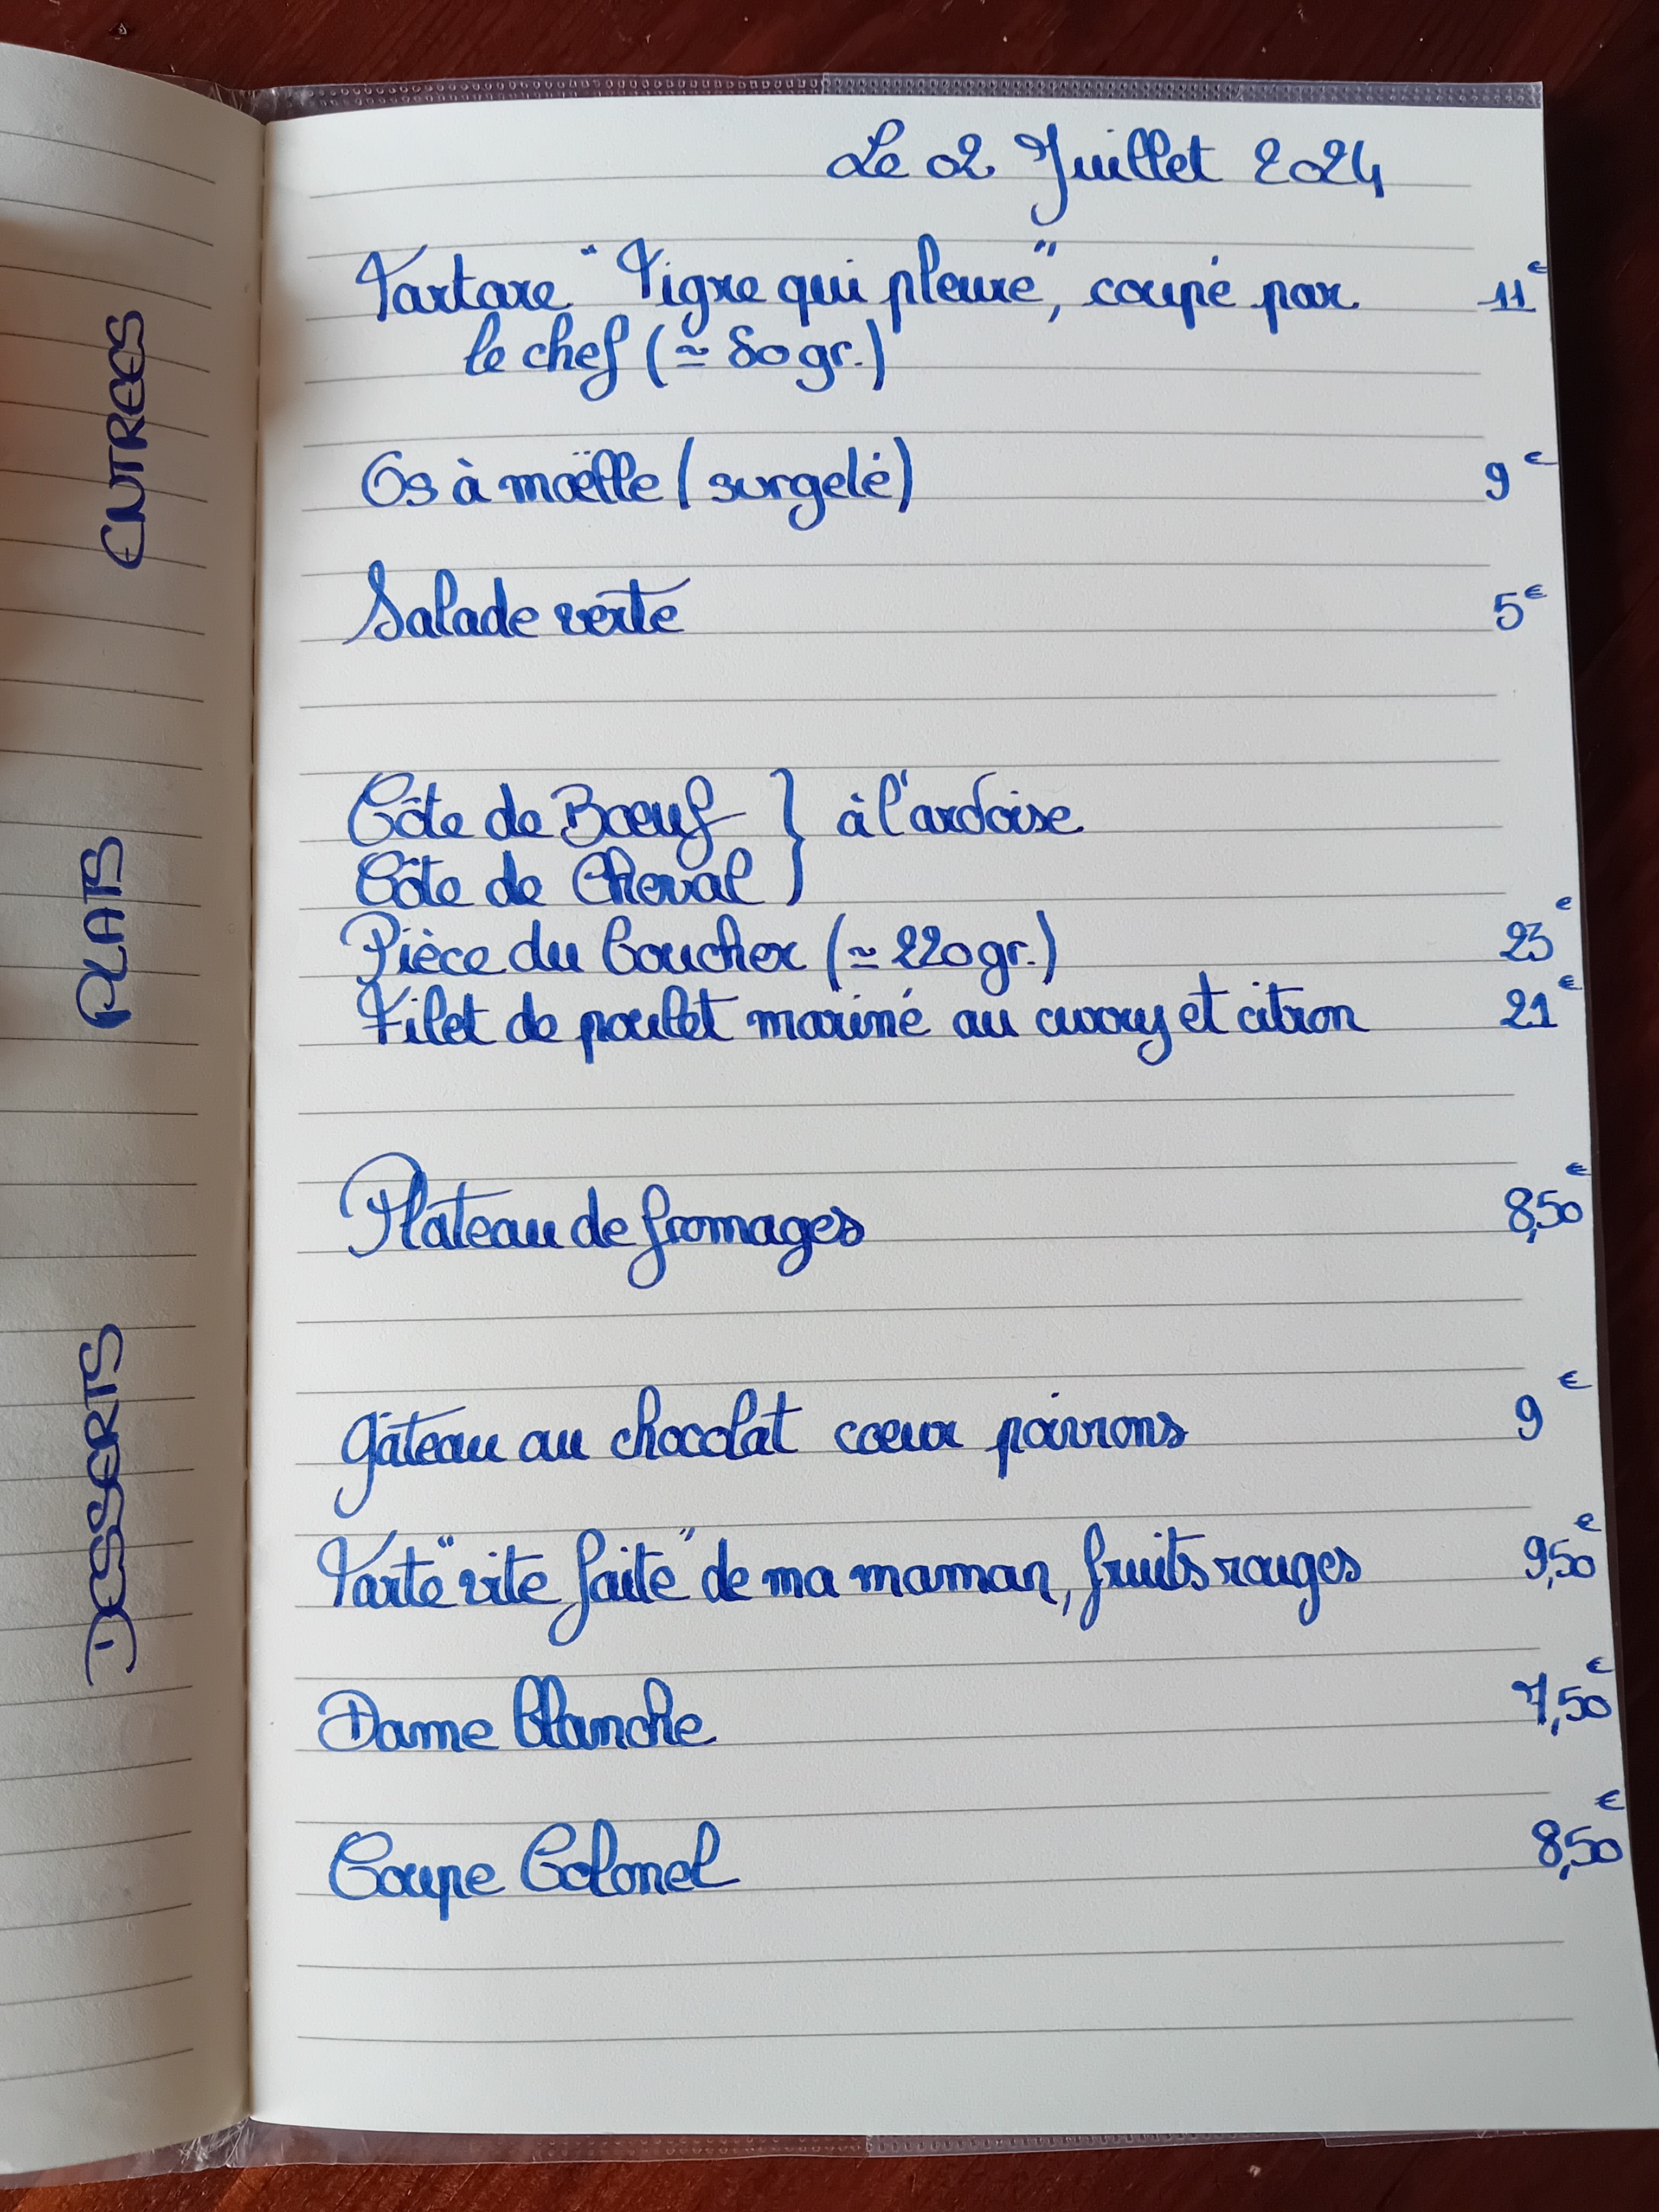 Le 02 Juillet 2024
ENTREES
Tartare "Tigre qui pleure", coupé par 11€
le chef (≃ 80gr.)
Os à moëlle (surgelé) 9€
Salade verte 5€
PLATS
Côte de Bœuf } à l'ardoise
Côte de Cheval
Pièce du boucher (≃ 220gr.) 23€
Filet de poulet mariné au curry et citron 21€
Plateau de fromages 8,50€
DESSERTS
Gâteau au chocolat coeur 9€
Tarte "vite faite" de ma maman, fruits rouges 9,50€
Dame blanche 7,50€
Coupe Colonel 8,50€